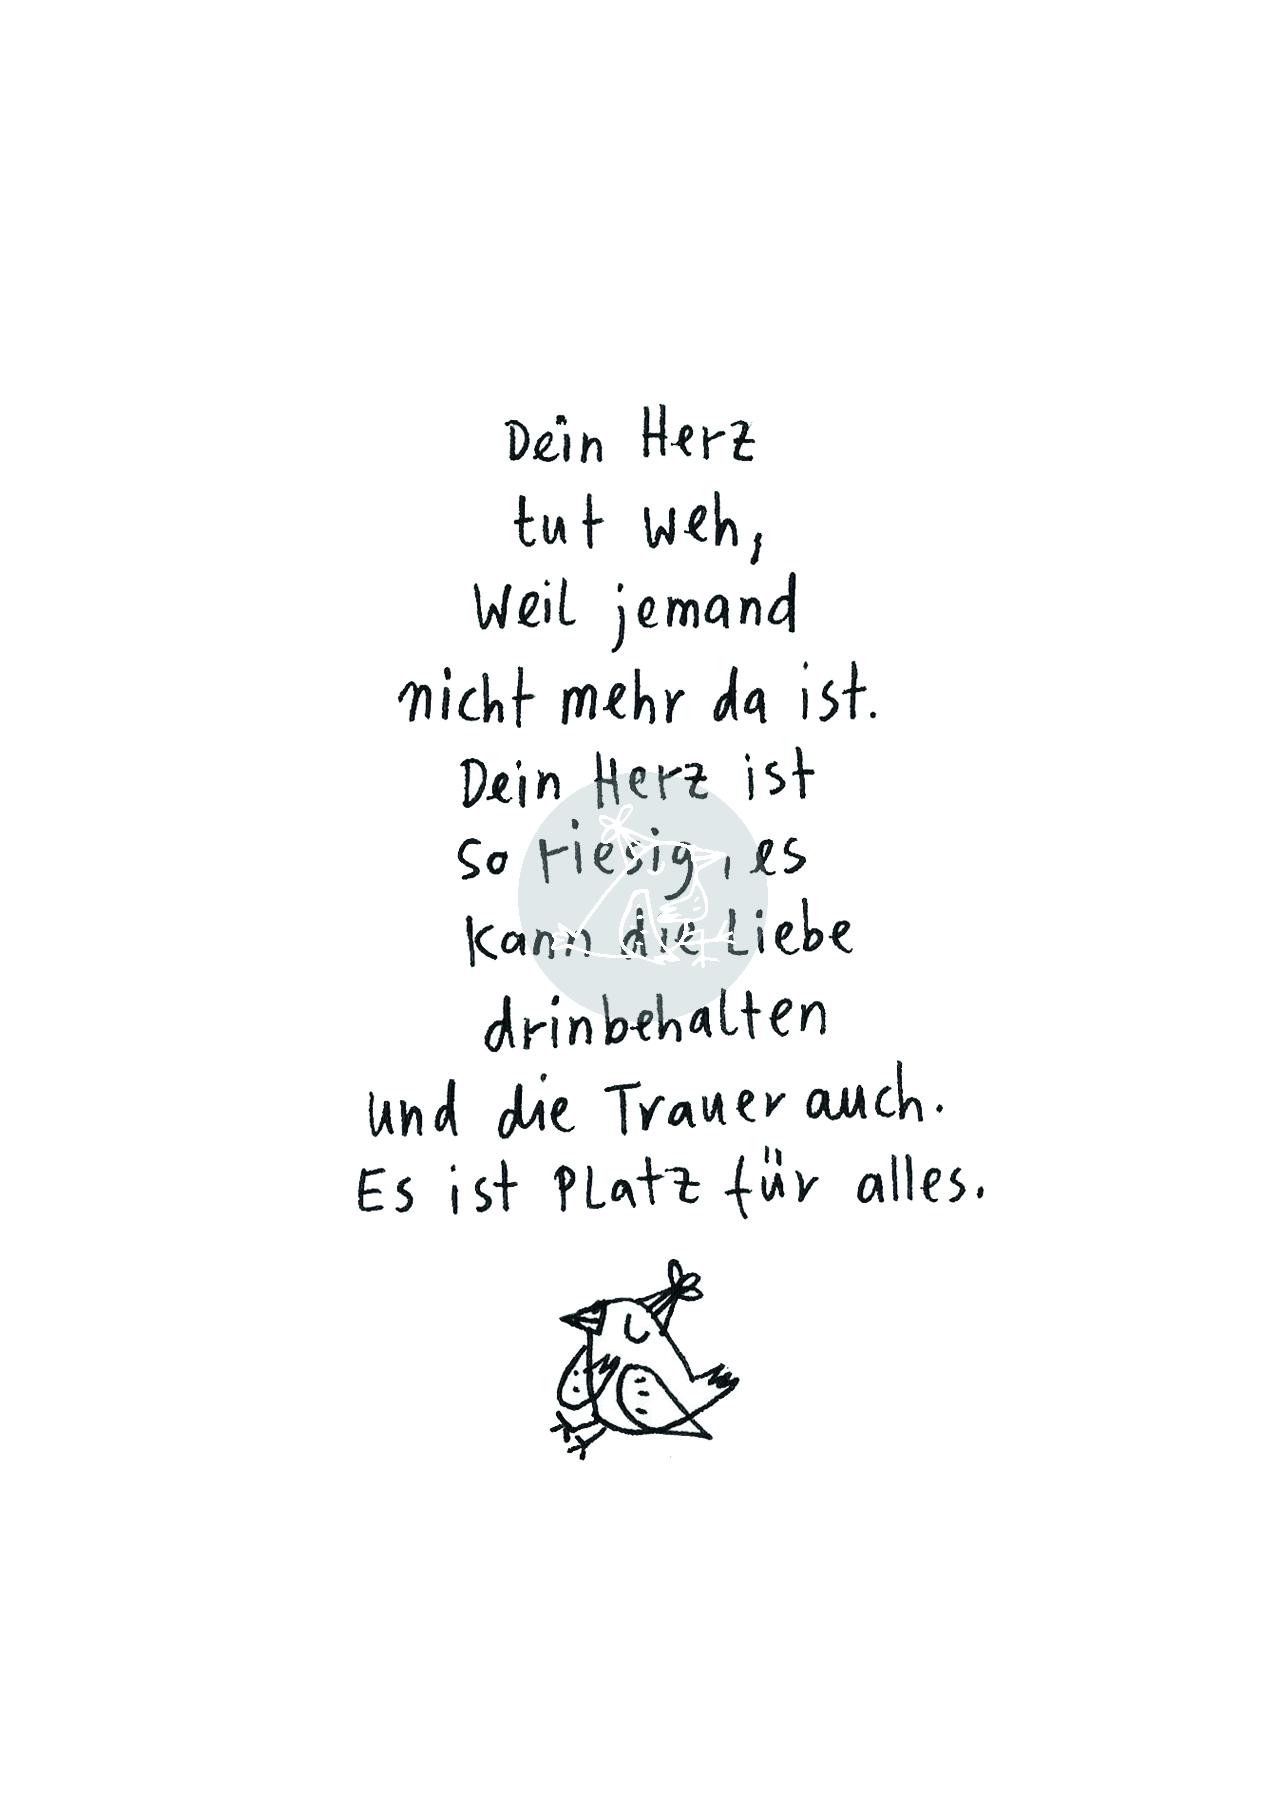 Dein Herz
tut weh,
Weil jemand
nicht mehr da ist.
Dein Herz ist
so riesig, es
kann die Liebe
drinbehalten
und die Trauer auch.
Es ist Platz für alles.